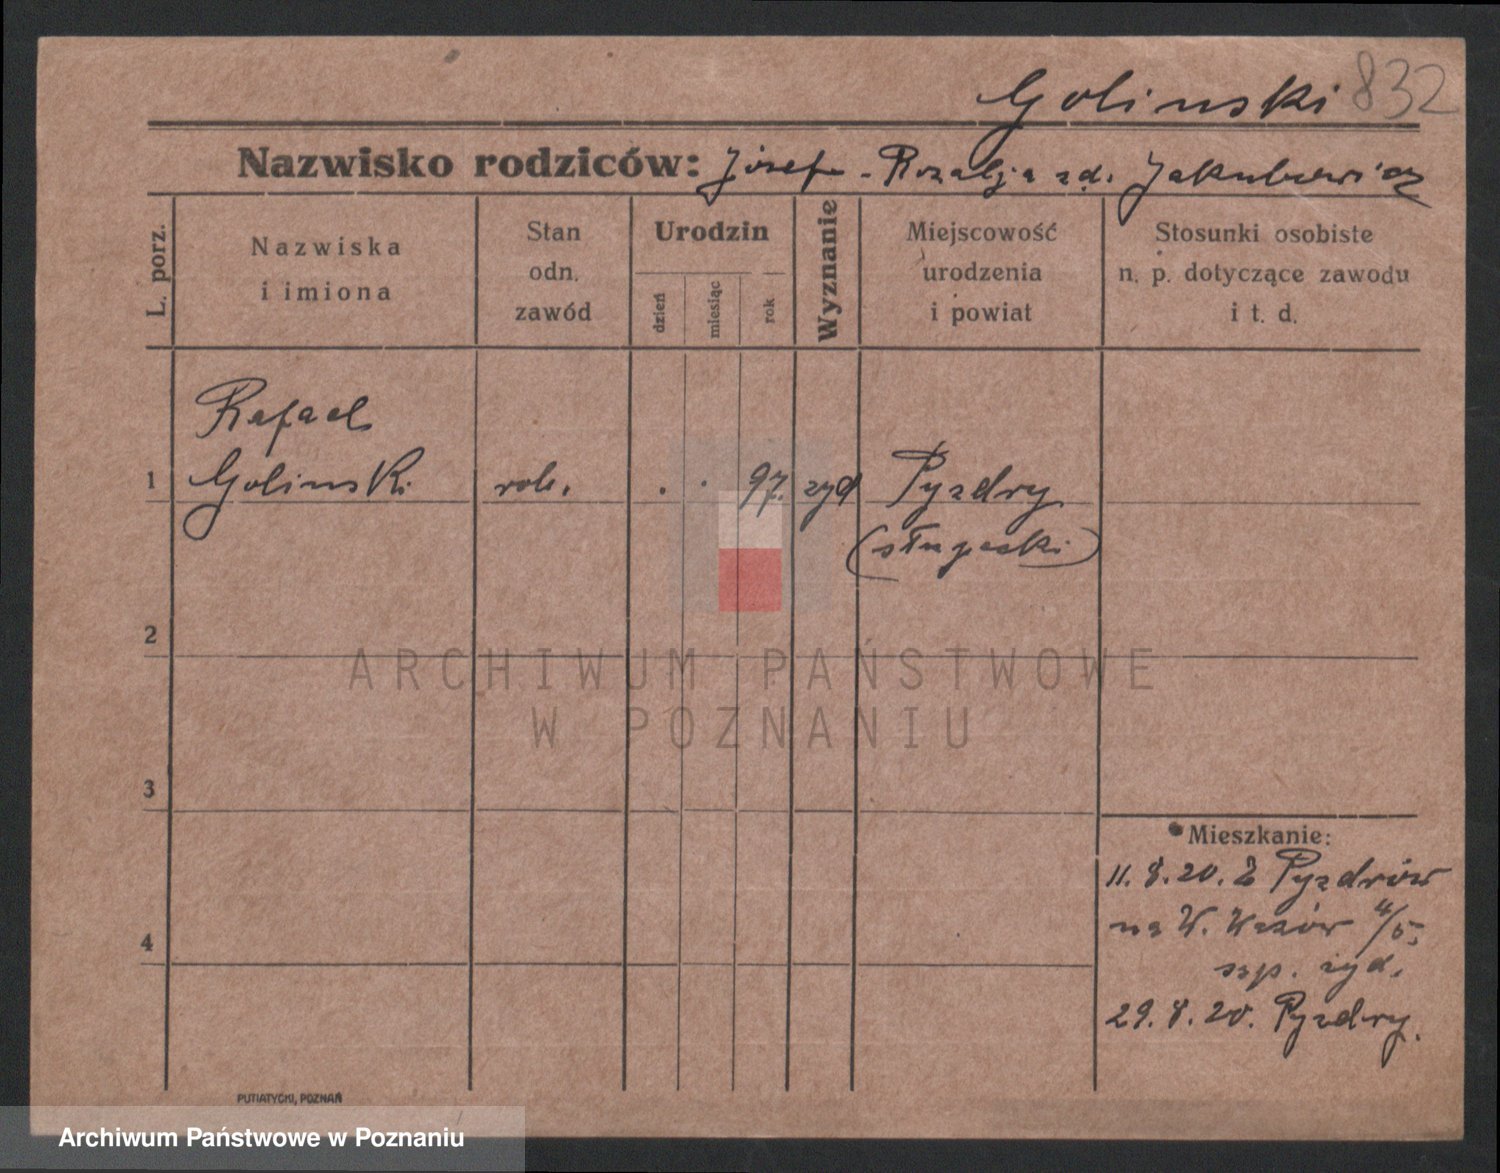 Golinski 832
Nazwisko rodziców: Józef - Rozalja zd. Jakubowicz
L. porz.
Nazwiska
i imiona
Stan
odn.
zawód
Urodzin
dzień
miesiąc
rok
Wyznanie
Miejscowość
urodzenia
i powiat
Stosunki osobiste
n. p. dotyczące zawodu
i t. d.
Rafael
1 Golinski rob. . . 97. żyd Pyzdry
(słupecki)
2
ARCHIWUM PAŃSTWOWE
W POZNANIU
3
Mieszkanie:
11. 8. 20. Z Pyzdrów
4 na W. 4/5,
szp. żyd.
29. 8. 20. Pyzdry.
PUTIATYCKI, POZNAŃ
Archiwum Państwowe w Poznaniu